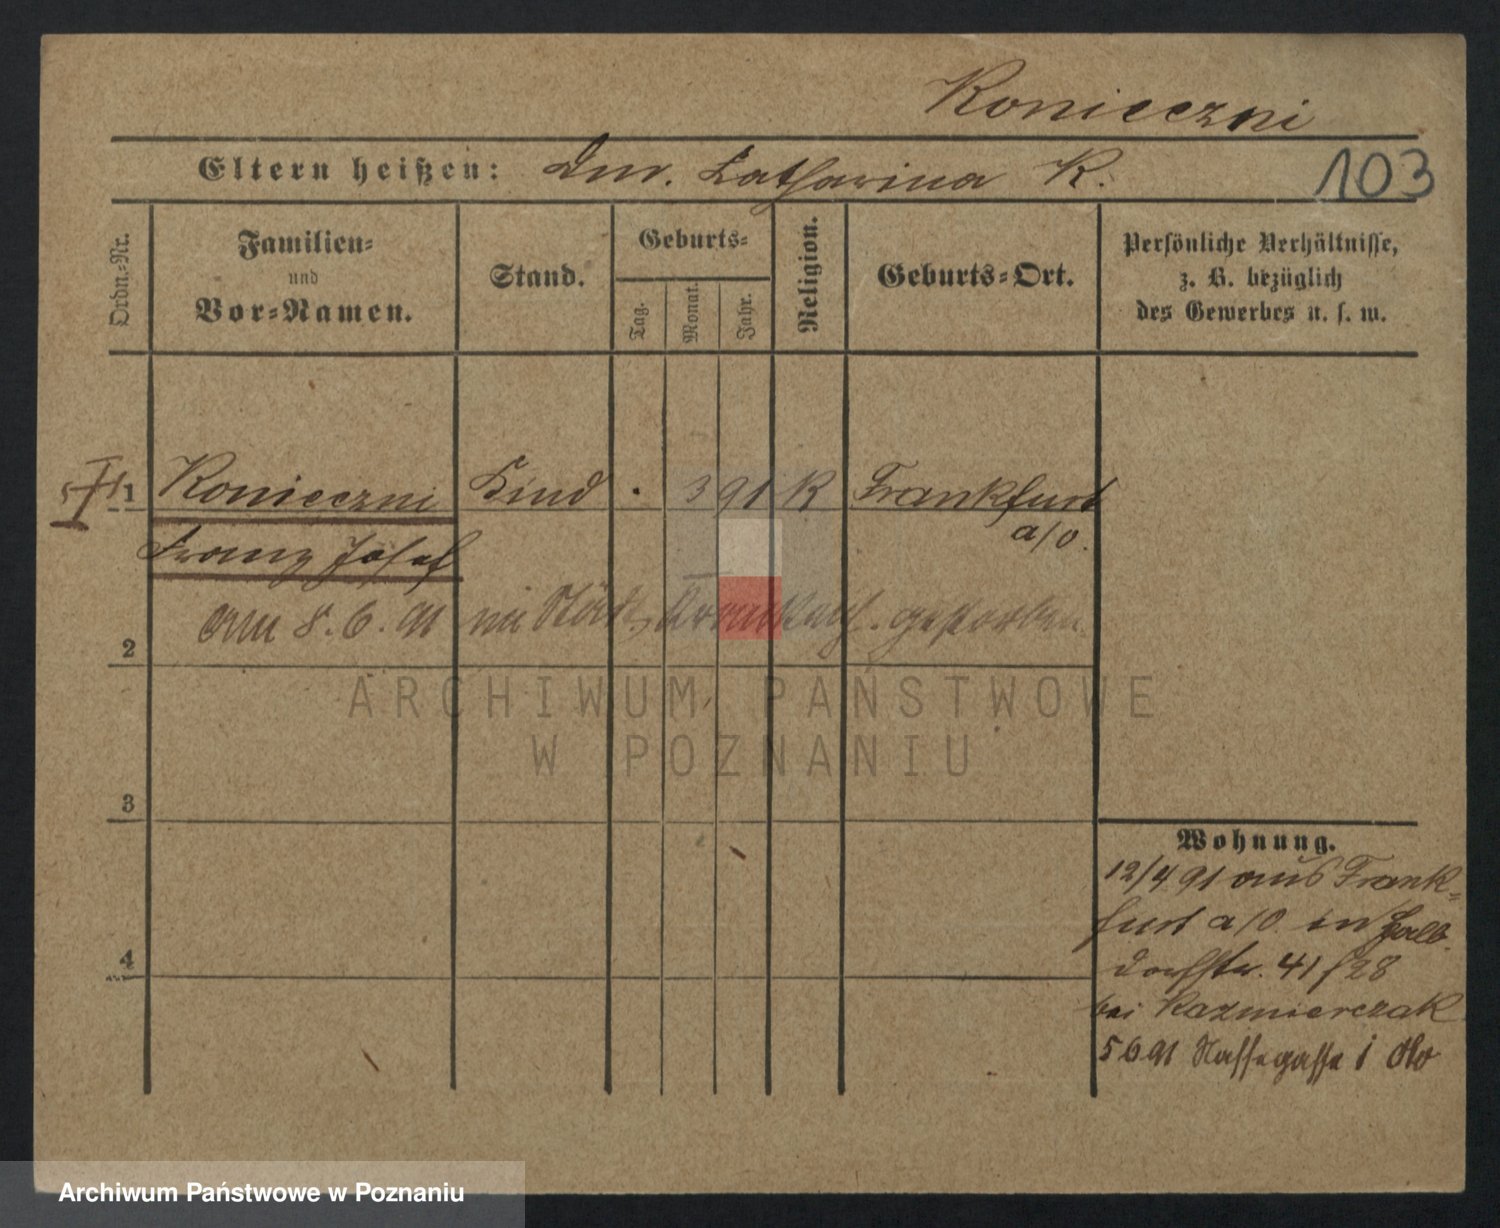 Konieczni
103
Eltern heißen: Catharina K.
Ordn.-Nr.
Familien-
und
Vor-Namen.
Stand.
Geburts-
Tag.
Monat.
Jahr.
Religion.
Geburts-Ort.
Persönliche Verhältnisse,
z. B. bezüglich
des Gewerbes u. s. w.
1 Konieczni Kind 3 91 K Frankfurt
a/O.
Franz Josef
am 8.6.91 im Städt. Krankenh. gestorben
2
ARCHIWUM PAŃSTWOWE
W POZNANIU
3
4
Wohnung.
12/4 91 aus Frank-
furt a/O in Halb-
dorfstr. 41/28
bei Kazmierczak
5 6 91 Nassegasse 1
Archiwum Państwowe w Poznaniu